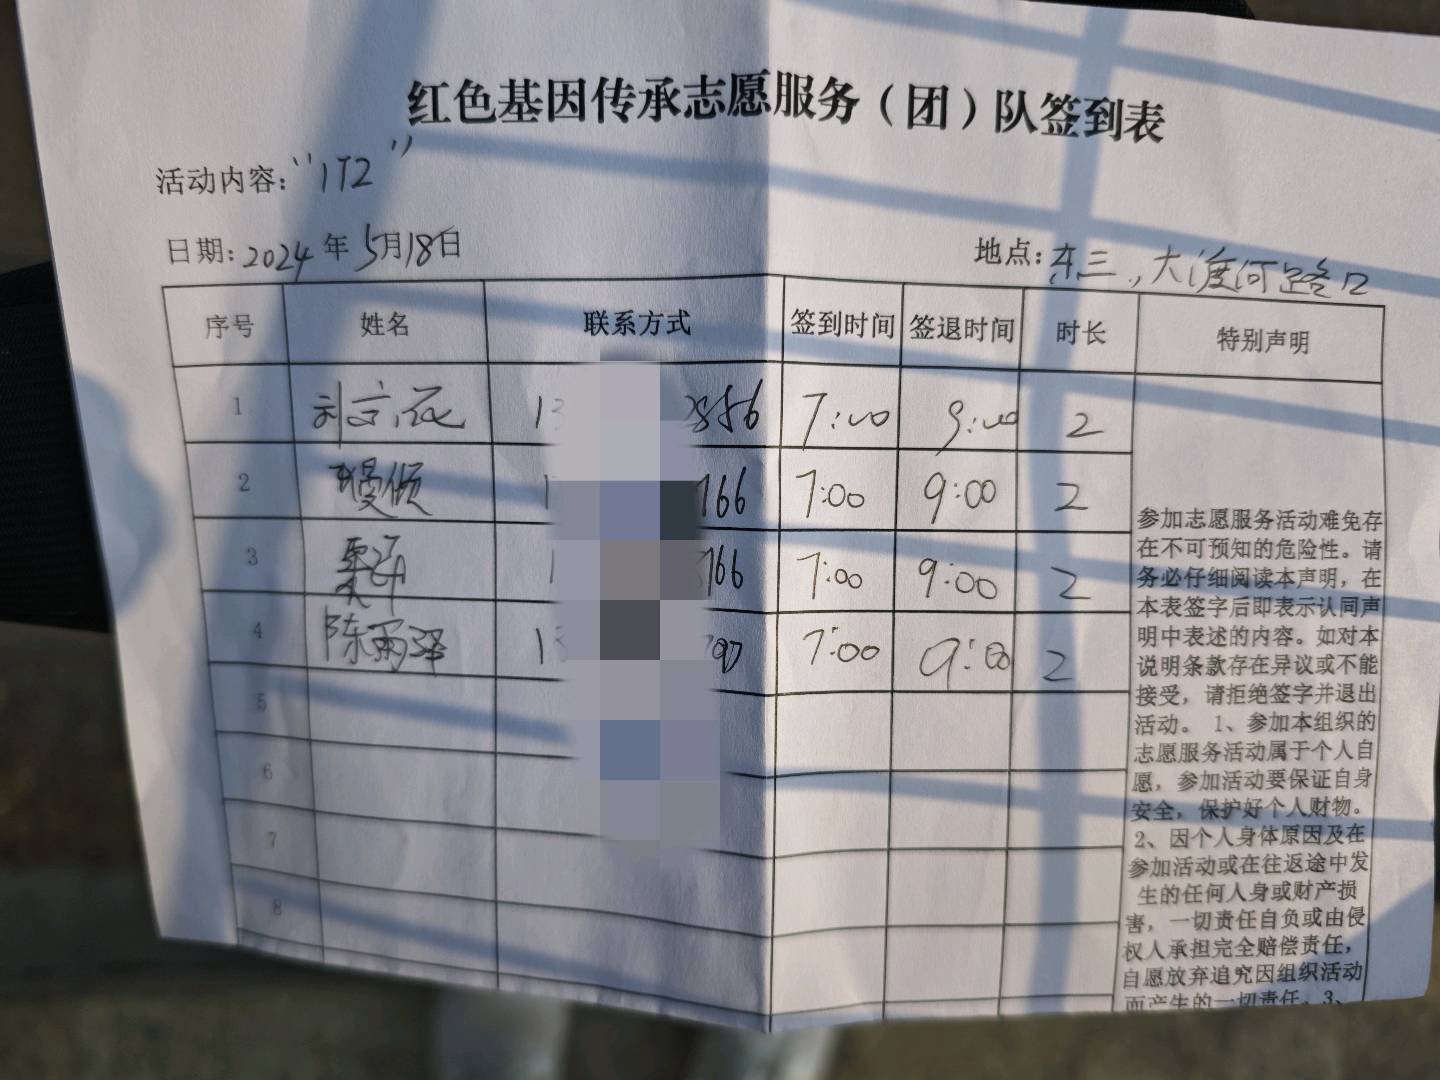 红色基因传承志愿服务（团）队签到表
活动内容："1T2"
日期：2024年5月18日
地点：东三，大渡河路口
序号 姓名 联系方式 签到时间 签退时间 时长 特别声明
1 13 2856 7:00 9:00 2
2 1 166 7:00 9:00 2
3 1 766 7:00 9:00 2
4 陈雨泽 13 797 7:00 9:00 2
5
6
7
8
参加志愿服务活动难免存
在不可预知的危险性。请
务必仔细阅读本声明，在
本表签字后即表示认同声
明中表述的内容。如对本
说明条款存在异议或不能
接受，请拒绝签字并退出
活动。1、参加本组织的
志愿服务活动属于个人自
愿，参加活动要保证自身
安全，保护好个人财物。
2、因个人身体原因及在
参加活动或在往返途中发
生的任何人身或财产损
害，一切责任自负或由侵
权人承担完全赔偿责任，
自愿放弃追究因组织活动
而产生的一切责任。3、